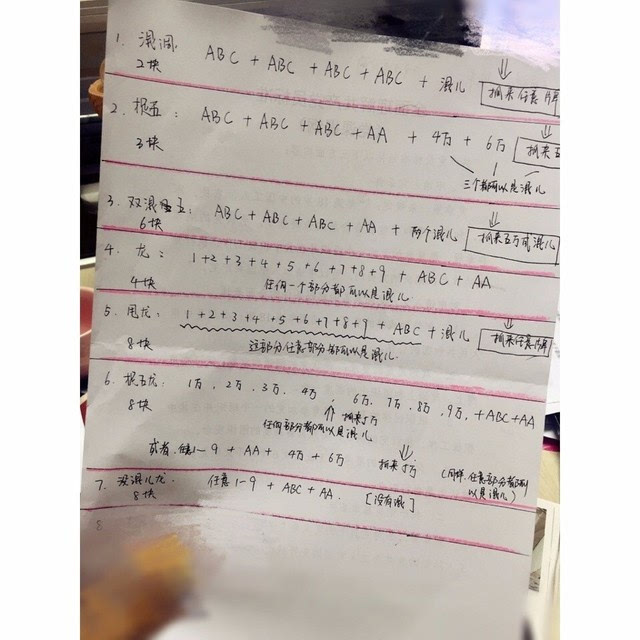 1. 混调. ABC + ABC + ABC + ABC + 混儿 ⇒ 捆来任意牌
2块
2. 捉五: ABC + ABC + ABC + AA + 4万 + 6万 ⇒ 捆来五
3块 三个都可以是混儿
3. 双混五: ABC + ABC + ABC + AA + 两个混儿 ⇒ 捆来五万或混儿
6块
4. 龙: 1+2+3+4+5+6+7+8+9 + ABC + AA
4块 任何一个部分都可以是混儿
5. 甩龙: 1+2+3+4+5+6+7+8+9 + ABC + 混儿 ⇒ 捆来任意牌
8块 这部分任意部分都可以是混儿
6. 捉五龙: 1万, 2万, 3万, 4万, 6万, 7万, 8万, 9万, + ABC + AA
8块 ⇑ 捆来5万
任何部分都可以是混儿
或者 任意1-9 + AA + 4万 + 6万 捆来5万 (同样, 任意部分都可以是混儿)
7. 没混儿龙. 任意1-9 + ABC + AA. [没有混]
8块
8